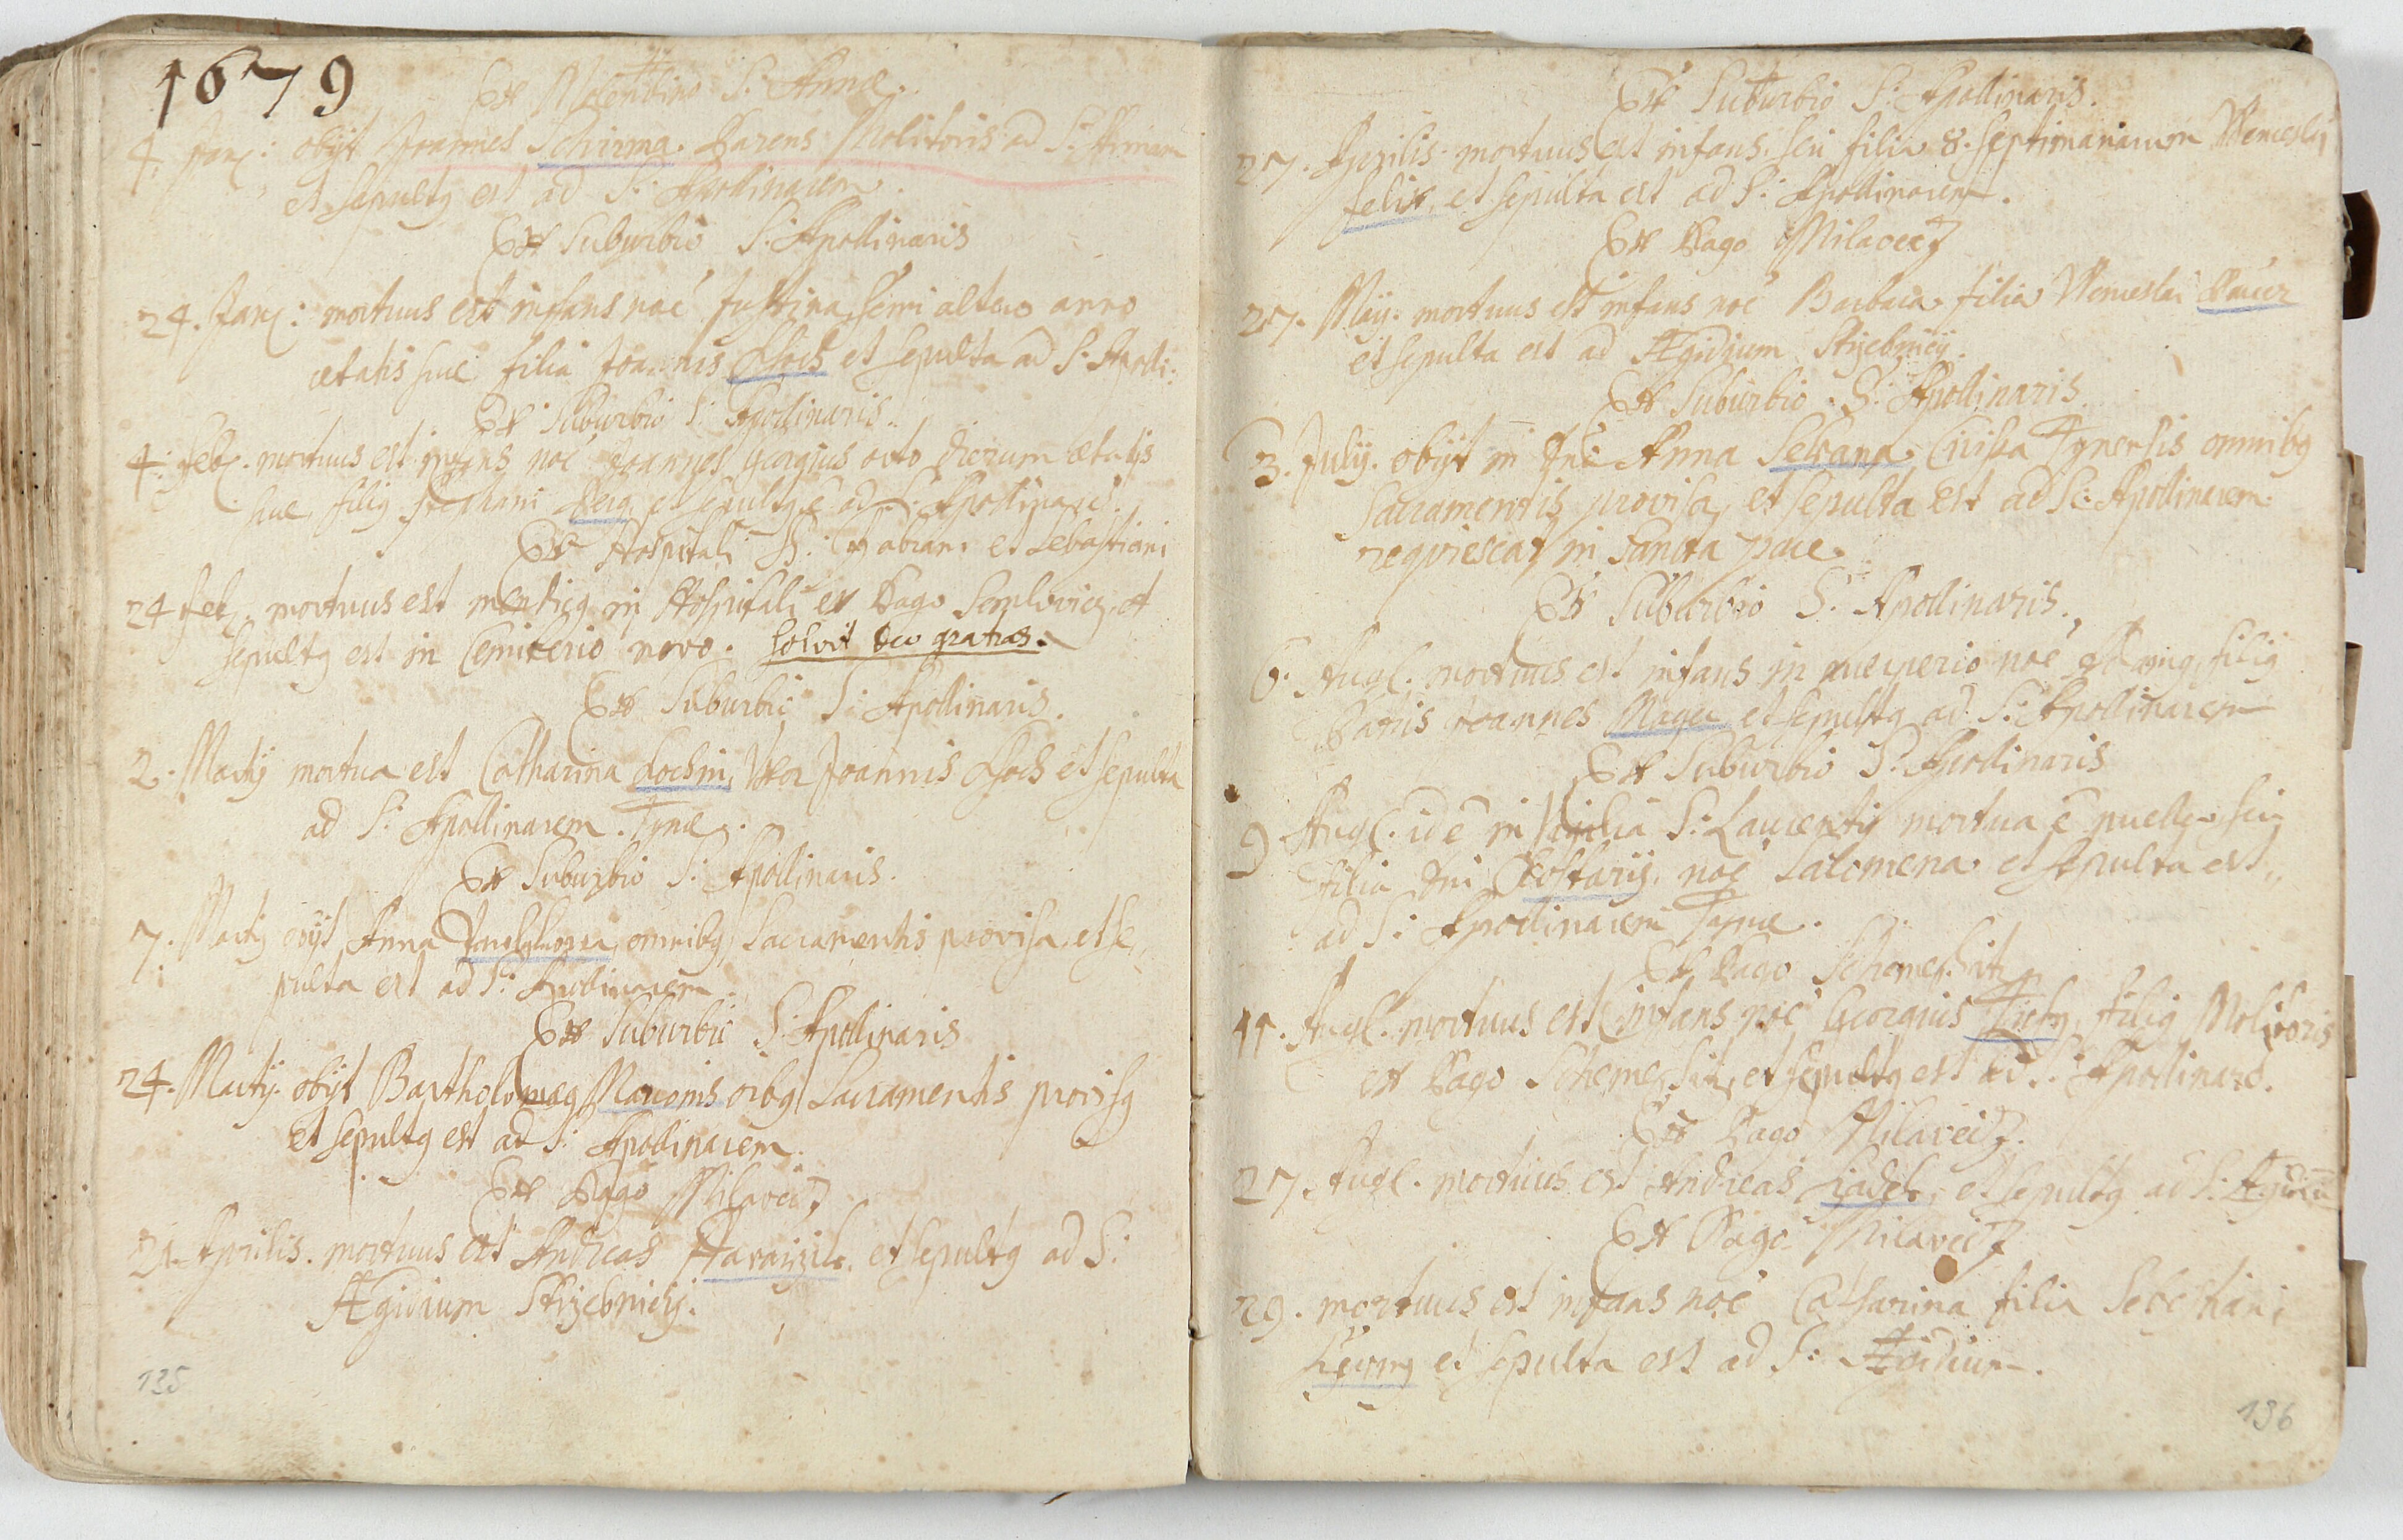 1679
Ex Molendino S: Annæ.
4. Jan: obijt Joannes Schirma. Parens Molitoris ad S: Annam
et sepultg est ad S: Apollinarem.
Ex Suburbio S: Apollinaris
24. Jan: mortuus est infans noē Justina, semi altero anno
ætatis suæ, filia Joannis et sepulta ad S. Apolli:
Ex Suburbio S: Apollinaris.
4. Feb: mortuus est infans noē Joannes Georgius octo dierum ætatis
suæ, filig Stephani et sepultg ē ad S. Apollinarē.
Ex Hospitali SS: Fabiani et Sebastiani
24 Feb. mortuus est mendicg in Hospitali ex Pago et
sepultg est in Cemiterio novo. Solvit Deo gratias.
Ex Suburbio S: Apollinaris.
2. Martij mortua est Catharina Uxor Joannis et sepulta
ad S: Apollinarem. Tynæ.
Ex Suburbio S: Apollinaris.
7. Martij obijt Anna omnibg Sacramentis provisa, et se,,
pulta est ad S: Apollinarem.
Ex Suburbio S: Apollinaris
24. Martij. obijt Bartholomæg oībg Sacramentis provisg
et sepultg est ad S: Apollinarem.
Ex Pago Milavecz
21. Aprilis. mortuus est Andreas et sepultg ad S:
Ægidium
135
Ex Suburbio S: Apollinaris.
27. Aprilis. mortuus est infans seu filia 8. septimanarum Wenceslai
Felix, et sepulta est ad S: Apollinarem.
Ex Pago Milavecz
27. Maij. mortuus est infans noē Barbara filia Wenceslai Pauer
et sepulta est ad Ægidium
Ex Suburbio S: Apollinaris
3. Julij. obijt in Dnō Anna Tynensis omnibg
Sacramentis provisa, et sepulta est ad S: Apollinarem.
requiescat in Sancta pace.
Ex Suburbio S: Apollinaris.
6. Aug. mortuus est infans in puerperio noē filig
Patris Joannes et sepultg ad S: Apollinarem
Ex Suburbio S: Apollinaris
9 Aug. id ē in Vigilia S: Laurentij mortua ē puella seu
filia Dni noē Salomena et sepulta est,,
ad S: Apollinarem Tynæ.
Ex Pago
11. Aug. mortuus est infans noē Georgius filig Molitoris
ex Pago et sepultg est ad S: Apollinarē.
Ex Pago Milavecz.
27. Aug. mortuus est Andreas et sepultg ad S. Ægidiū
Ex Pago Milavecz
29. mortuus est infans noē Catharina filia Sebestiani
et sepulta est ad S: Ægidium.
136